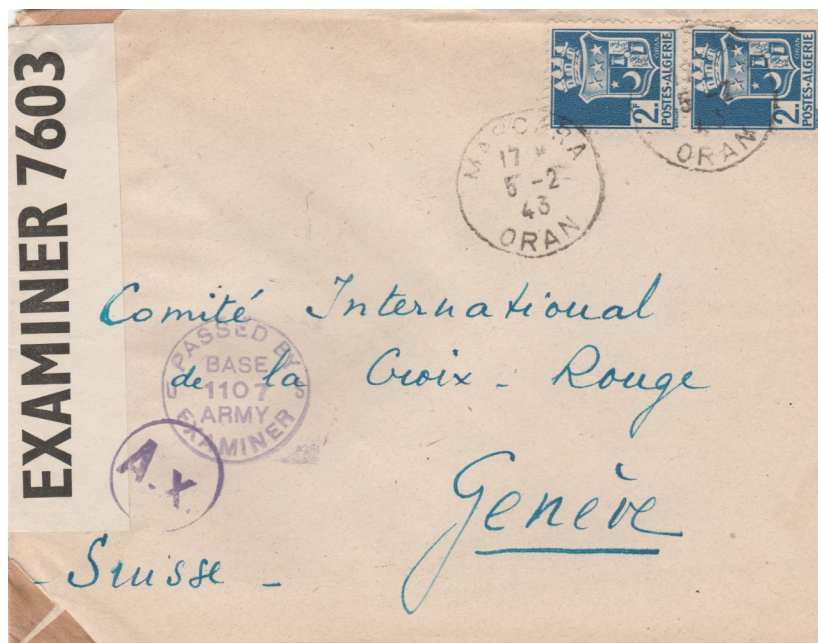 EXAMINER 7603
2F
POSTES-ALGERIE
2F
POSTES-ALGERIE
MASCARA
17 *
5-2
43
ORAN
ORAN
Comité International
de la Croix-Rouge
Genève
- Suisse -
PASSED BY
BASE
1107
ARMY
EXAMINER
U S
A.X.